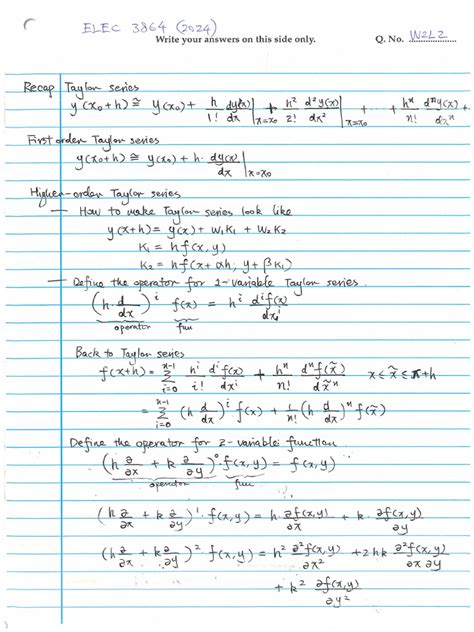 ELEC 3864 (2024)
Write your answers on this side only. Q. No. W2L2
Recap Taylor series
y(x₀+h) ≅ y(x₀) + h/1! dy(x)/dx |x=x₀ + h²/2! d²y(x)/dx² |x=x₀ + ·· + hⁿ/n! dⁿy(x)/dxⁿ +
First order Taylor series
y(x₀+h) ≅ y(x₀) + h · dy(x)/dx |x=x₀
Higher-order Taylor series
— How to make Taylor series look like
y(x+h) = y(x) + W₁K₁ + W₂K₂
K₁ = hf(x, y)
K₂ = hf(x + αh, y + βK₁)
— Define the operator for 1-variable Taylor series.
(h · d/dx)ⁱ f(x) = hⁱ dⁱf(x)/dxⁱ
operator fun
Back to Taylor series
f(x+h) = Σ n-1 i=0 hⁱ/i! dⁱf(x)/dxⁱ + hⁿ/n! dⁿf(x̃)/dx̃ⁿ x ≤ x̃ ≤ x+h
= Σ n-1 i=0 (h d/dx)ⁱ f(x) + 1/n! (h d/dx)ⁿ f(x̃)
Define the operator for 2-variable function
(h ∂/∂x + k ∂/∂y)⁰ · f(x,y) = f(x,y)
operator fun
(h ∂/∂x + k ∂/∂y)¹ · f(x,y) = h · ∂f(x,y)/∂x + k · ∂f(x,y)/∂y
(h ∂/∂x + k ∂/∂y)² f(x,y) = h² ∂²f(x,y)/∂x² + 2hk ∂²f(x,y)/∂x∂y
+ k² ∂f(x,y)/∂y²